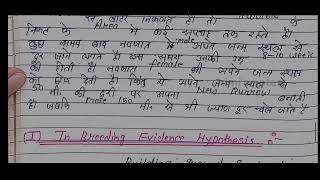 से बाहर निकलते ही तो Burrow के
निकट के Area में कई सप्ताह तक रहते हैं।
कुछ समय बाद नवजात male अपने जन्म स्थल से
दूर जाने लगते हैं इस समय उनकी उम्र 8-10 week
की होती है। नवजात female भी अपने जन्म स्थान
को छोड़ देती है किंतु वे अपने जन्म स्थल से
50 मी. की दूरी पर अपना New Burrow बनाती
है। जबकि male 150 मी. से भी ज्यादा दूर चले जाते हैं
I In Breeding Evidence Hypothesis :-